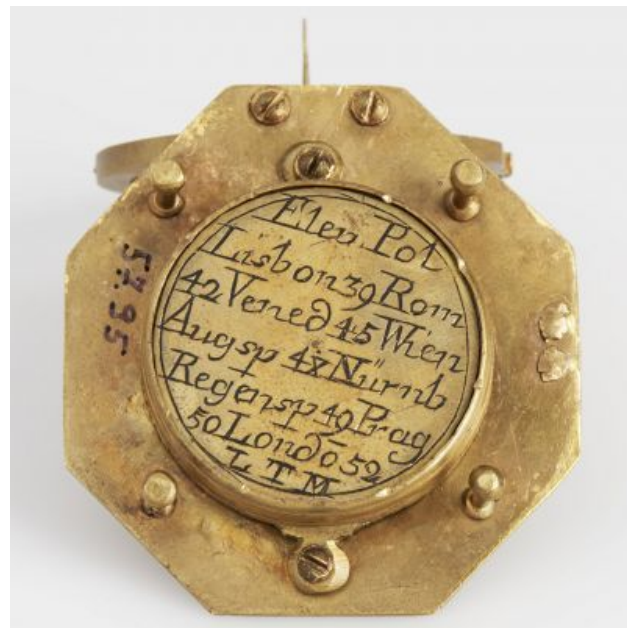 Elev. Pol
Lisbon 39 Rom
42 Vened 45 Wien
Augsp 48 Nürnb
Regensp 49 Prag
50 Londō 52
L T M
57.95